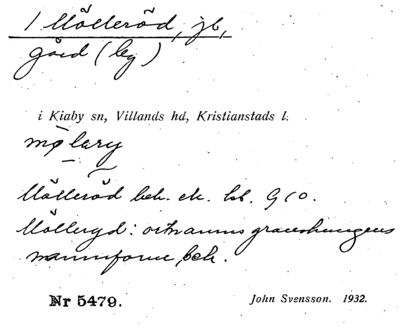 1 Mölleröd, jb,
gård (bg)
i Kiaby sn, Villands hd, Kristianstads l.
mølary
Mölleröd bek. ek. bl. 9 C O.
Möllegyd: ortnamnsgranskningens
namnform, bek.
Nr 5479.
John Svensson. 1932.